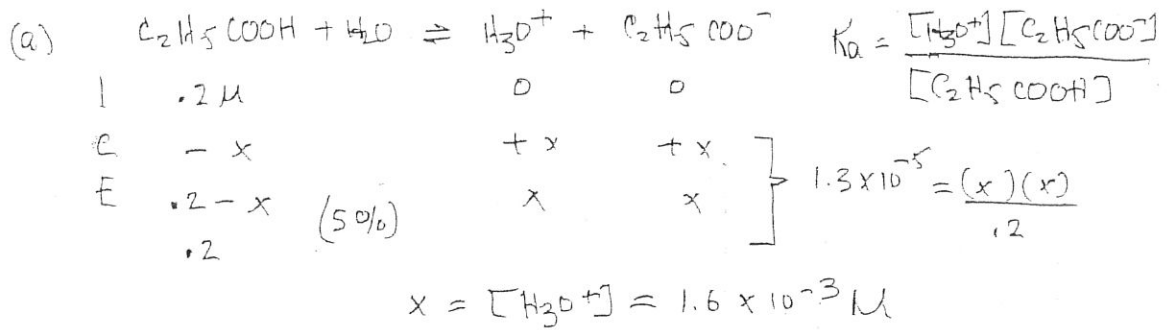 (a) C₂H₅COOH + H₂O ⇌ H₃O⁺ + C₂H₅COO⁻ Ka = [H₃O⁺][C₂H₅COO⁻] / [C₂H₅COOH]
I .2 M 0 0
C - x + x + x
E .2 - x (5%) x x 1.3 x 10⁻⁵ = (x)(x) / .2
.2
x = [H₃O⁺] = 1.6 x 10⁻³ M